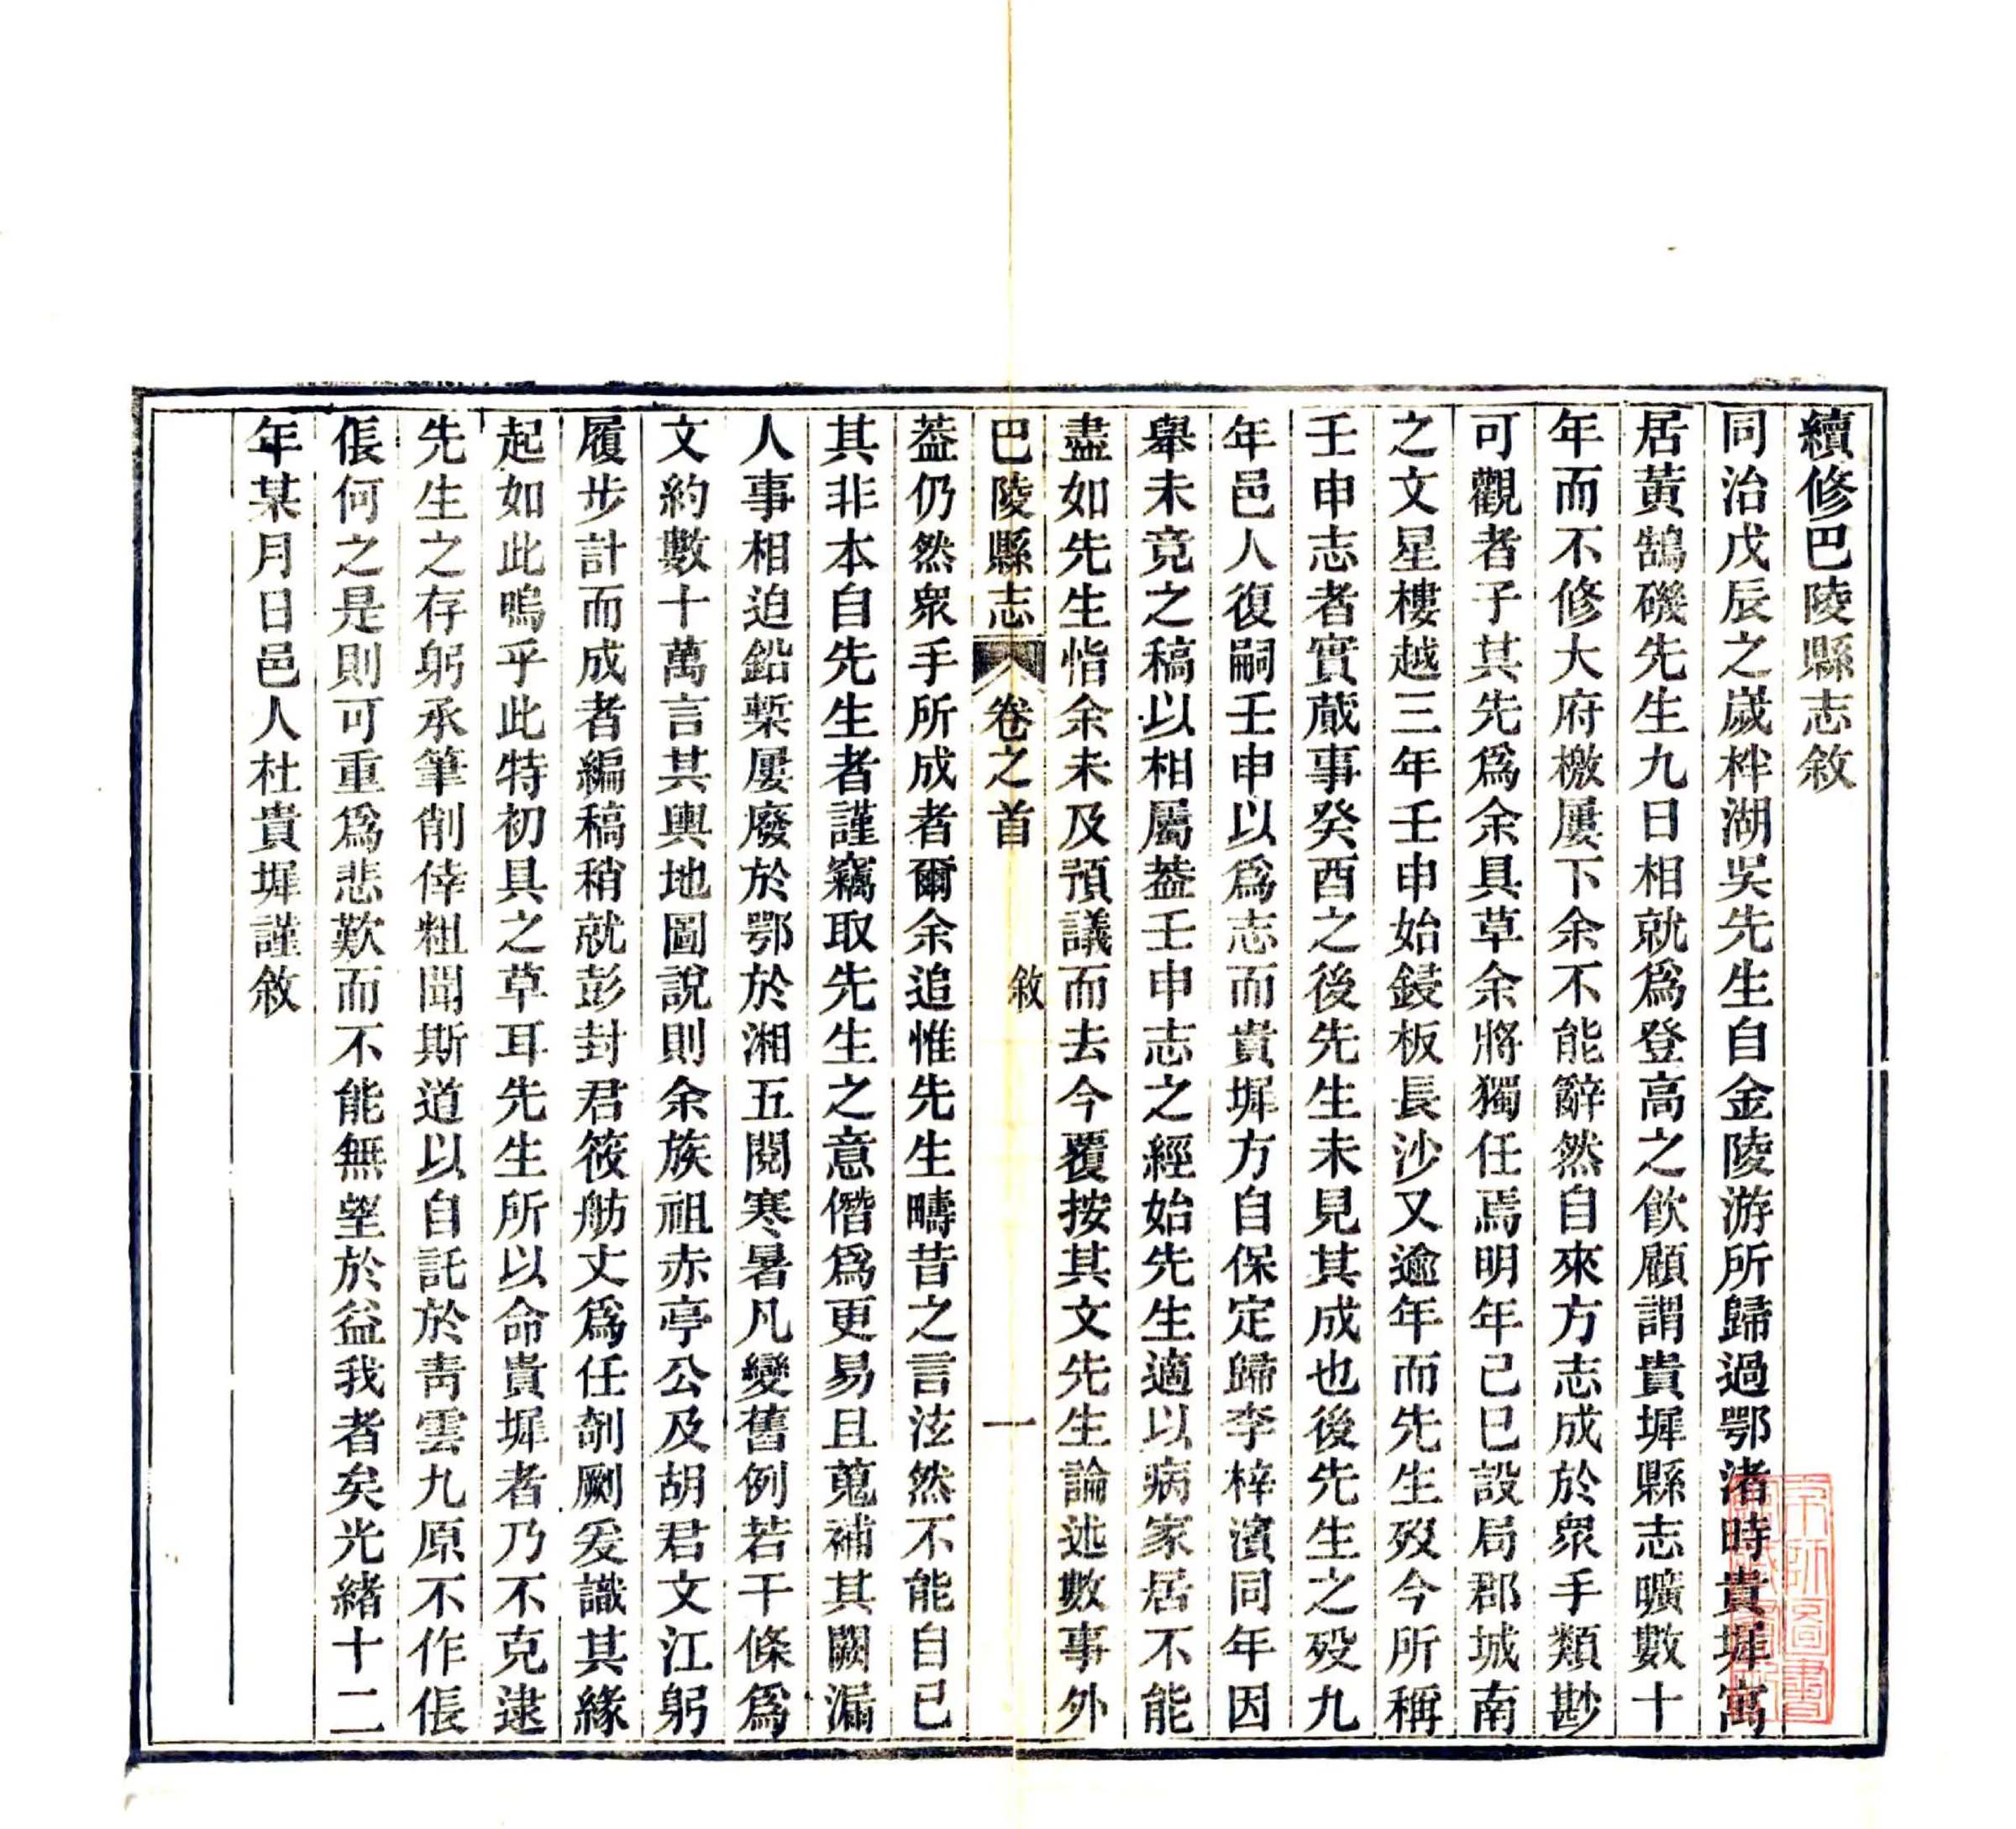 續修巴陵縣志敘
同治戊辰之歲柈湖吳先生自金陵游所歸過鄂渚時貴墀寓
居黃鵠磯先生九日相就爲登高之飮顧謂貴墀縣志曠數十
年而不修大府檄屢下余不能辭然自來方志成於眾手類尟
可觀者子其先爲余具草余將獨任焉明年己巳設局郡城南
之文星樓越三年壬申始鋟板長沙又逾年而先生歿今所稱
壬申志者實蕆事癸酉之後先生未見其成也後先生之歿九
年邑人復嗣壬申以爲志而貴墀方自保定歸李梓濱同年因
舉未竟之稿以相屬葢壬申志之經始先生適以病家居不能
盡如先生恉余未及預議而去今覆按其文先生論述數事外
巴陵縣志 卷之首 敘 一
葢仍然眾手所成者爾余追惟先生疇昔之言泫然不能自已
其非本自先生者謹竊取先生之意僭爲更易且蒐補其闕漏
人事相迫鉛槧屢廢於鄂於湘五閱寒暑凡變舊例若干條爲
文約數十萬言其輿地圖說則余族祖赤亭公及胡君文江躬
履步計而成者編稿稍就彭封君筱舫丈爲任剞劂爰識其緣
起如此嗚乎此特初具之草耳先生所以命貴墀者乃不克逮
先生之存躬承筆削倖粗聞斯道以自託於靑雲九原不作倀
倀何之是則可重爲悲歎而不能無望於益我者矣光緒十二
年某月日邑人杜貴墀謹敘